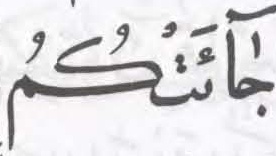 جَآئَتْكُمُ